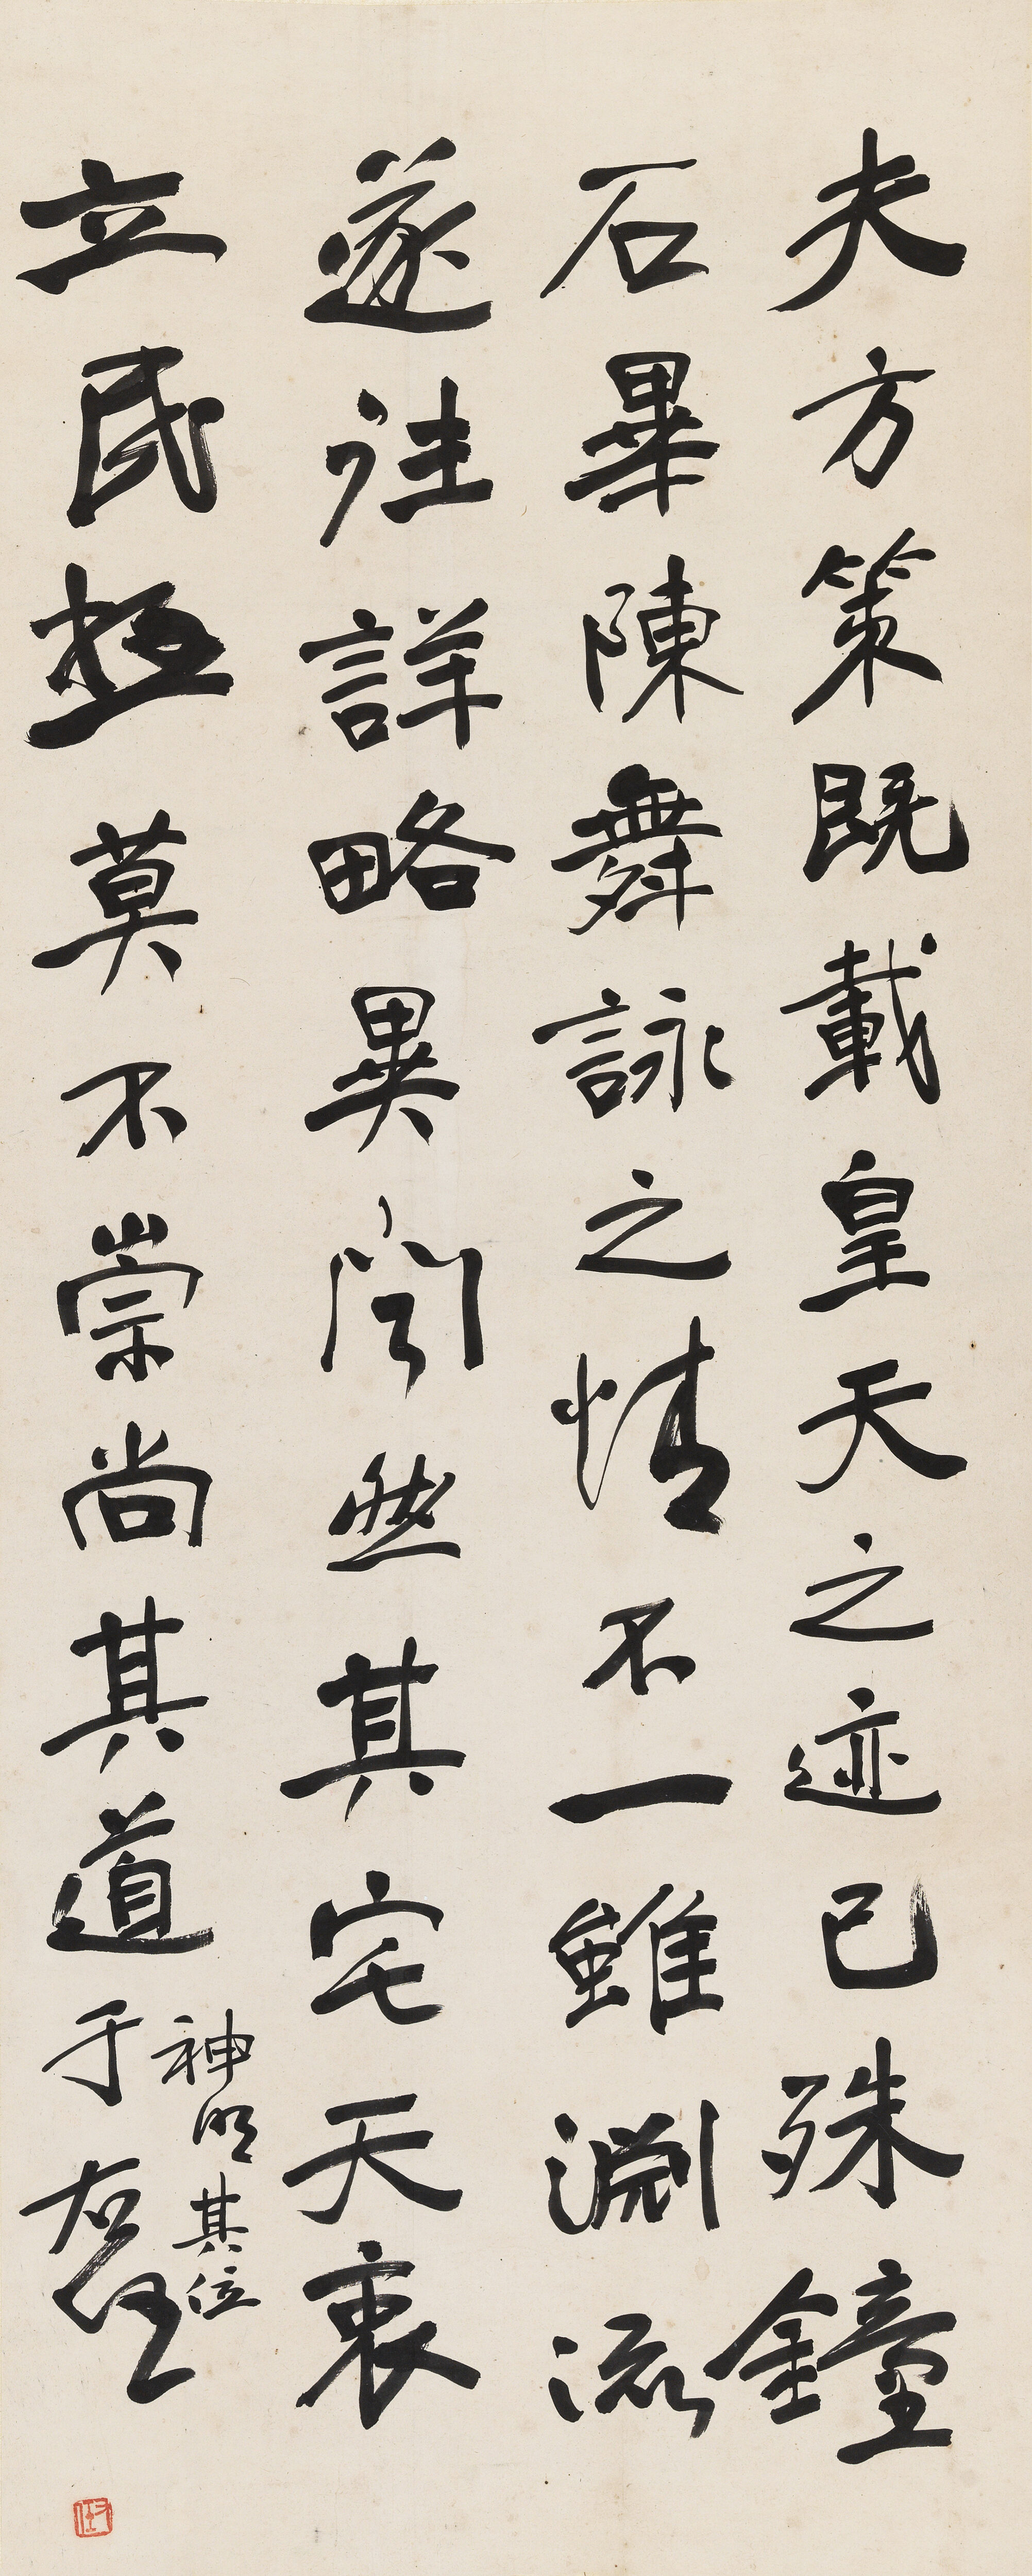 夫方策既載皇天之迹已殊鐘
石畢陳舞詠之情不一雖淵流
遂往詳略異聞然其宅天衷
立民極莫不崇尚其道
神明其位
于右任
右任